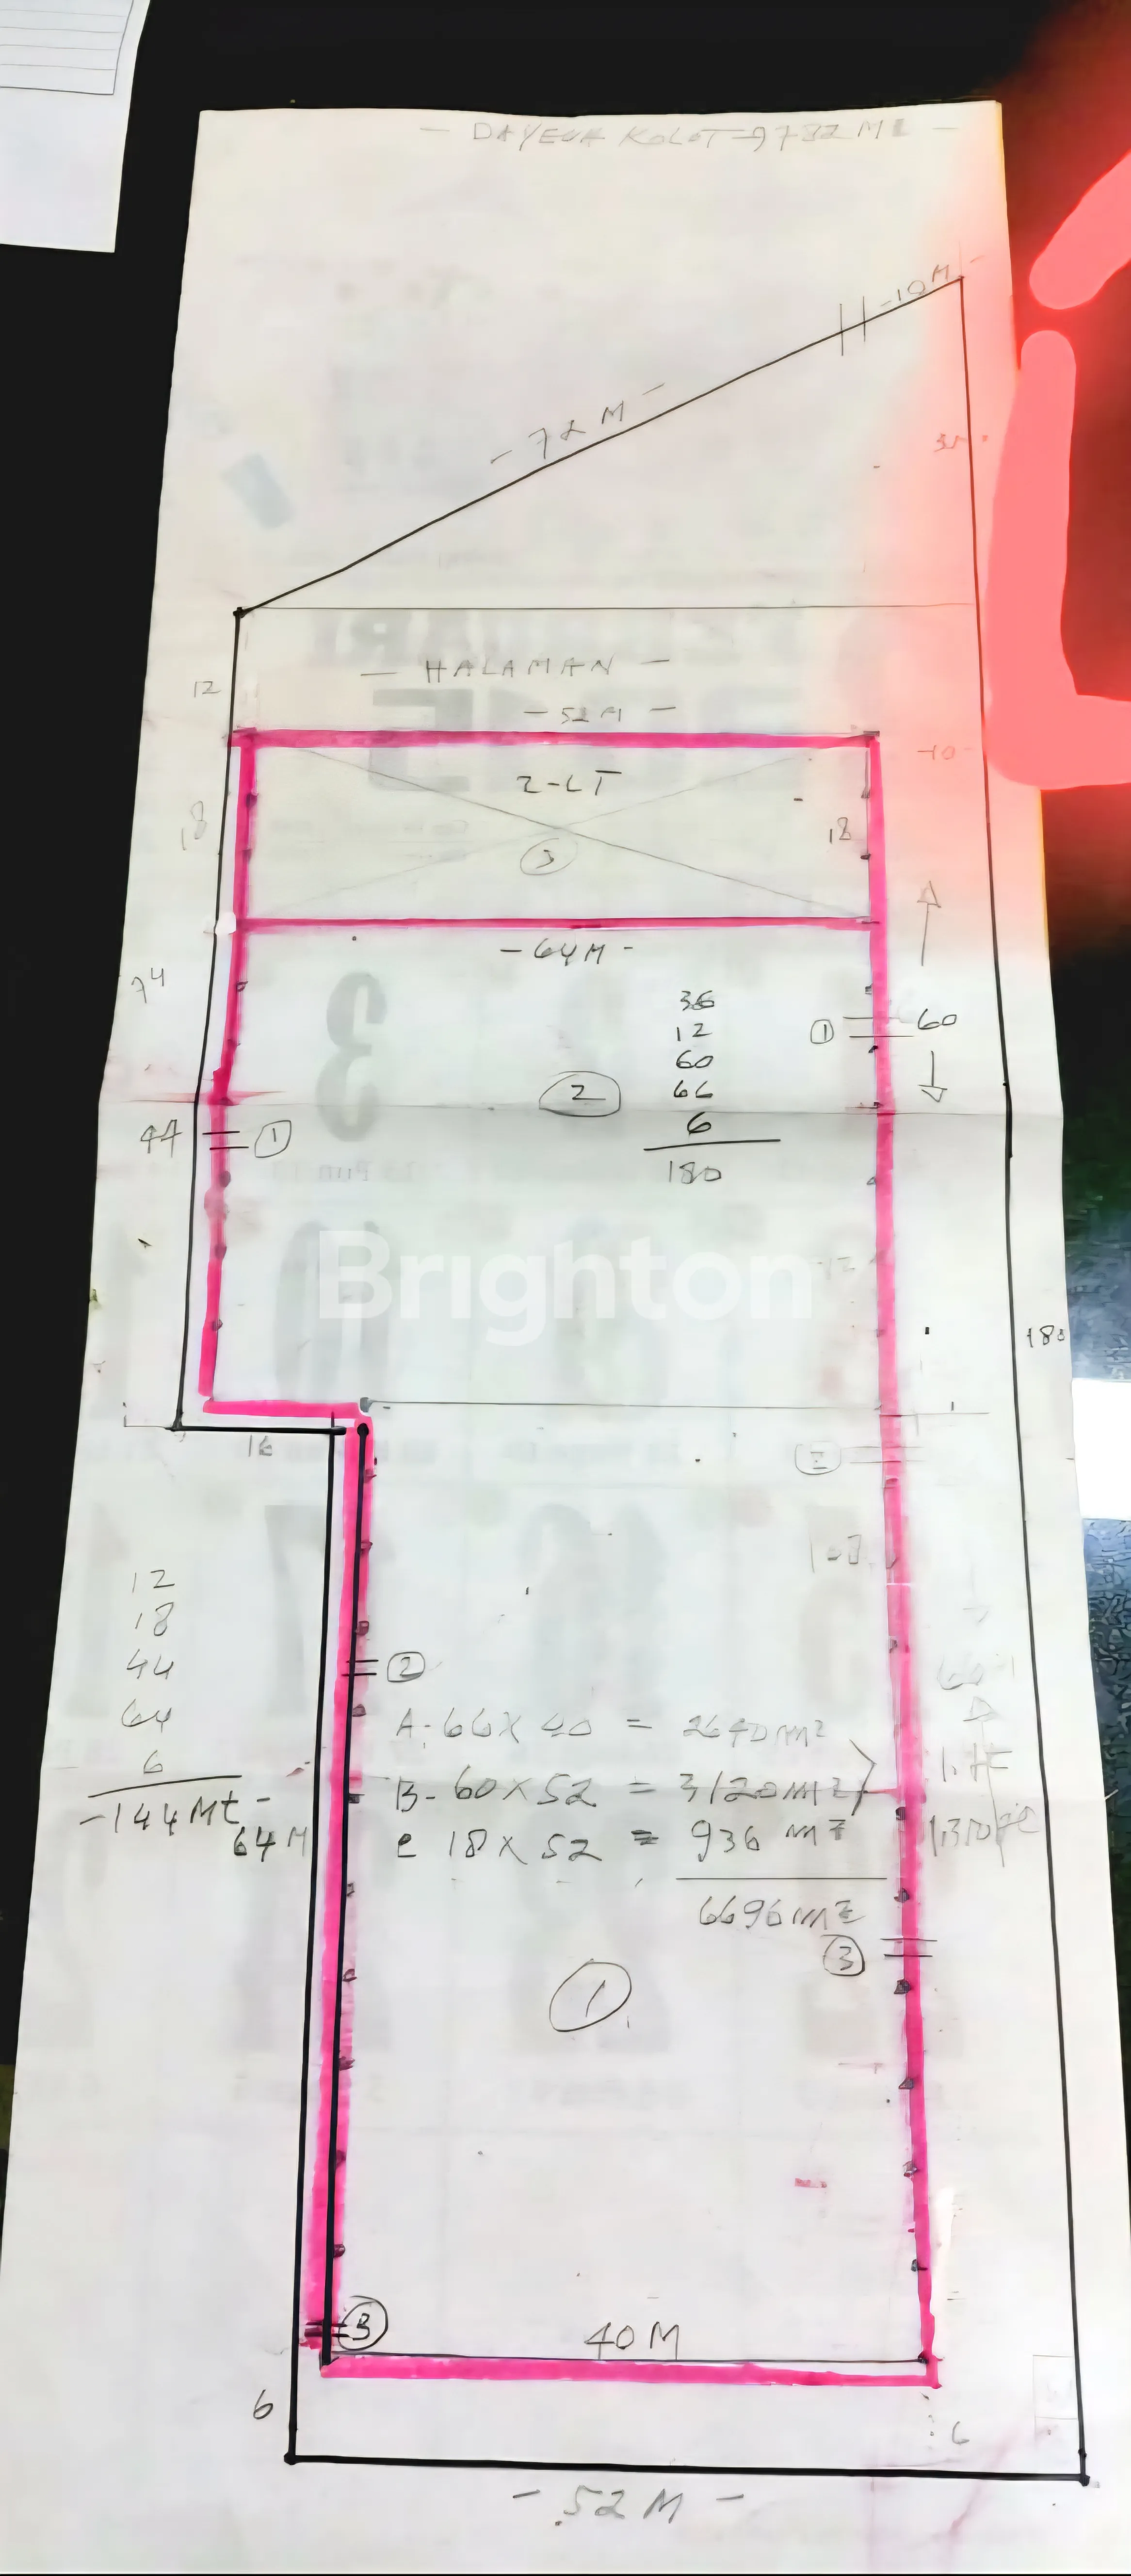 - DAYEUH KOLOT 9732 M2 -
-10M-
-72M-
- HALAMAN -
12
-52M-
2-LT
10
18
18
3
-64M-
74
36
12
60
66
6
180
1
60
2
44
1
Brighton
180
16
2
12
18
44
64
6
-144Mt-
2
A. 66x40 = 2640m²
B- 60x52 = 3120m²
C 18x52 = 936 m²
6696m²
64M
3
1
3
40M
6
6
- 52M -